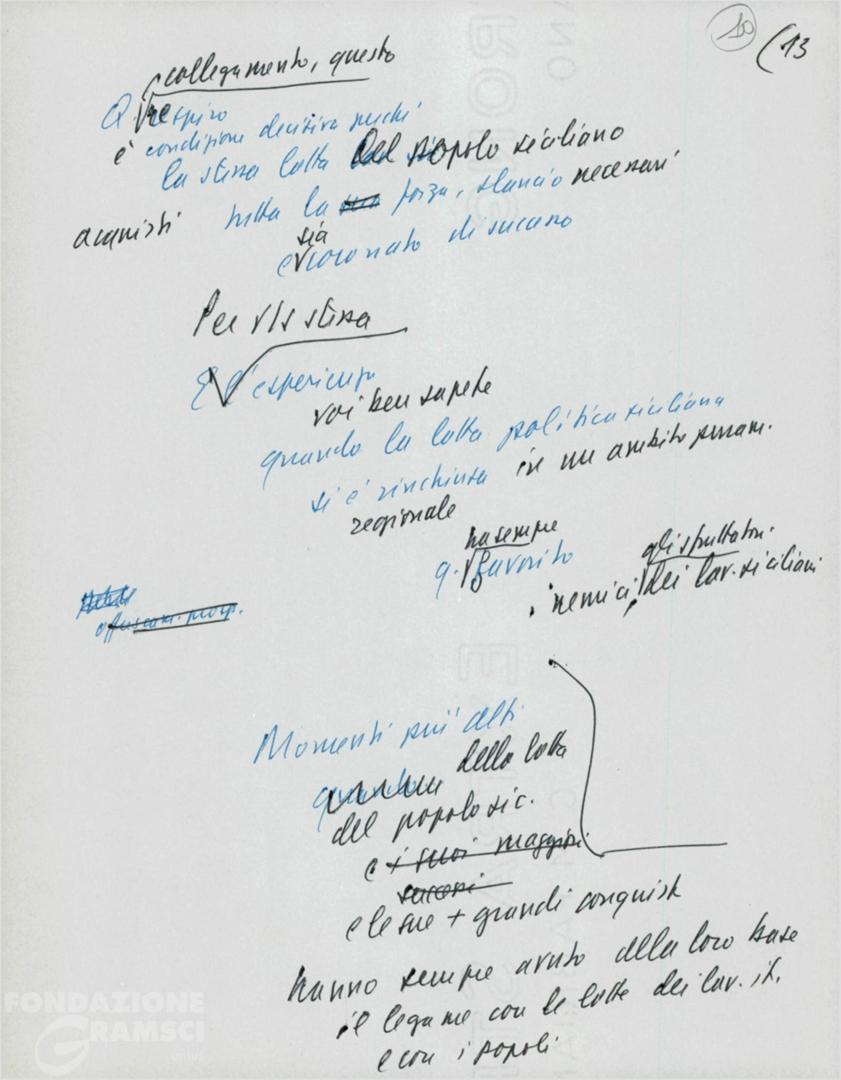 10 (13
collegamento, questo
Q. respiro
è condizione decisiva perché
la stessa lotta del popolo siciliano
acquisti tutta la forza, slancio necessari
sia
e coronato di successo
Per vs stessa
E l'esperienza
voi ben sapete
quando la lotta politica siciliana
si è rinchiusa in un ambito puram.
regionale
ha sempre gli sfruttatori
q. favorito
i nemici, dei lav. siciliani
offuscam. prosp.
Momenti più alti
quando della lotta
del popolo sic.
e i suoi maggiori
successi
e le sue + grandi conquiste
hanno sempre avuto alla loro base
il legame con le lotte dei lav. it.
e con i popoli
FONDAZIONE
GRAMSCI